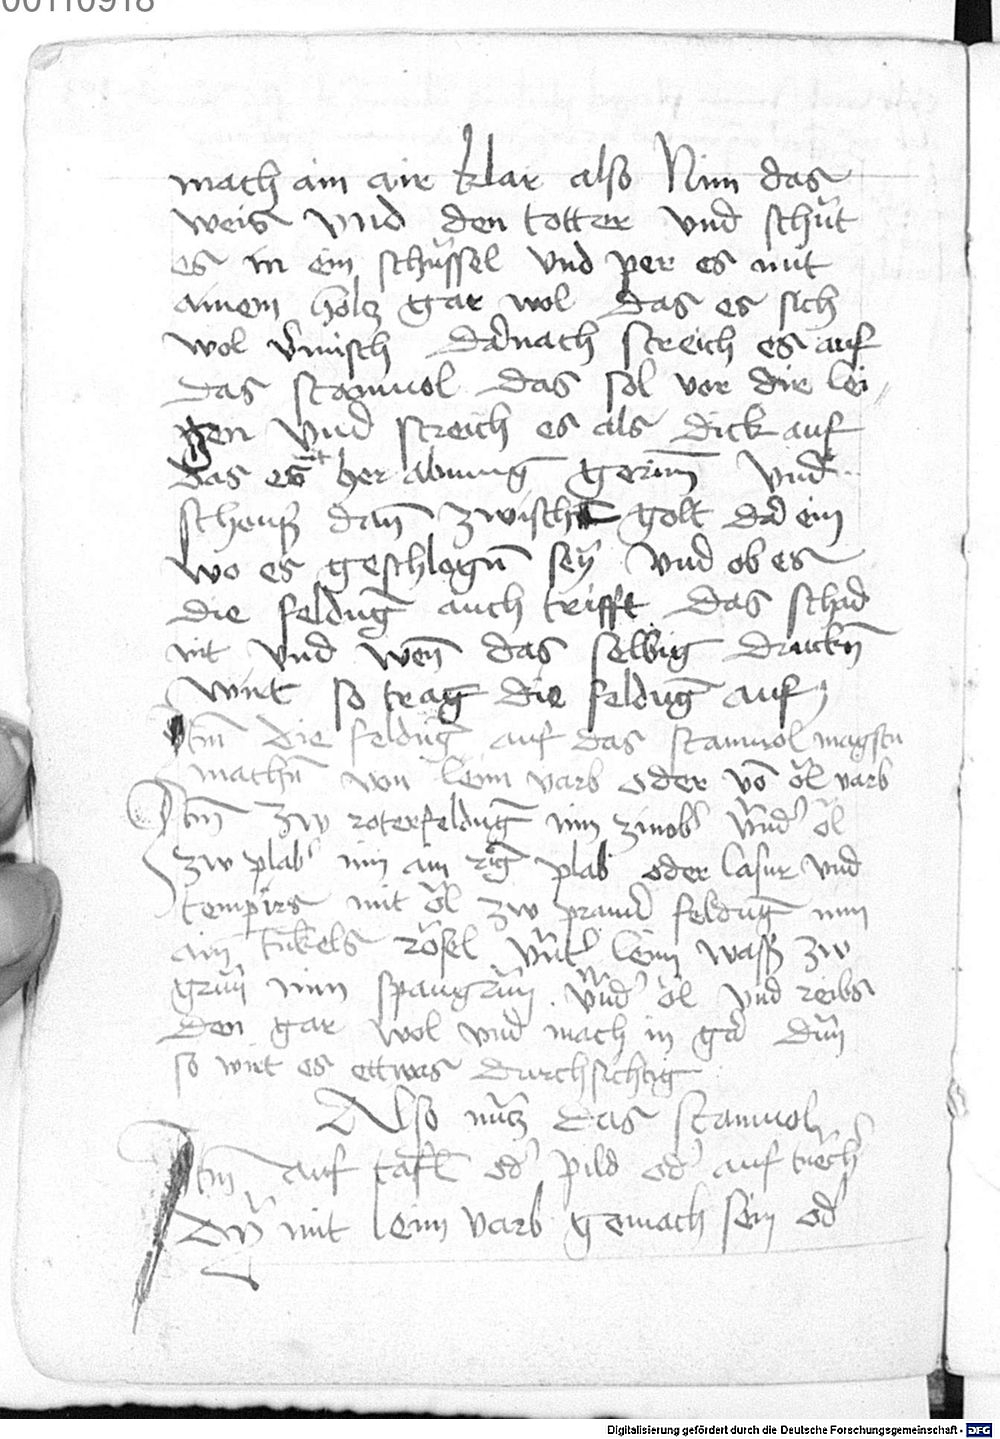 00110918
mach ain air klar also Nim das
weis vnd den totter vnd schüt
es in ein schüssel vnd per es mit
ainem holtz gar wol das es sich
wol vmisch Darnach streich es auf
das stanniol das sol vor dir lei
gen vnd streich es als dick auf
das es nit her ab gerinn vnd
scheuß dan zwischgolt dar ein
wo es geschlagn sey vnd ob es
die feldug auch trifft das schad
nit vnd wen das selbig druckn
wirt so trag die feldug auf
Itm die feldug auf das stanniol magstu
machn von leim varb oder vo öl varb
Itm zw roterfeldug nim zinober vnder öl
zw plaber nim ain plab oder lasur vnd
tempirs mit öl zw prauner feldug nim
ain tunkels rösel vnter leim wasser zw
grün nim spangrün vnder öl vnd reibs
den gar wol vnd mach in gar dün
so wirt es ettwas durchsichtig
Also nütz das stanniol
Itm auf tafl oder pild oder auf tücher
Dy mit leim varb gemach sein oder
Digitalisierung gefördert durch die Deutsche Forschungsgemeinschaft - DFG